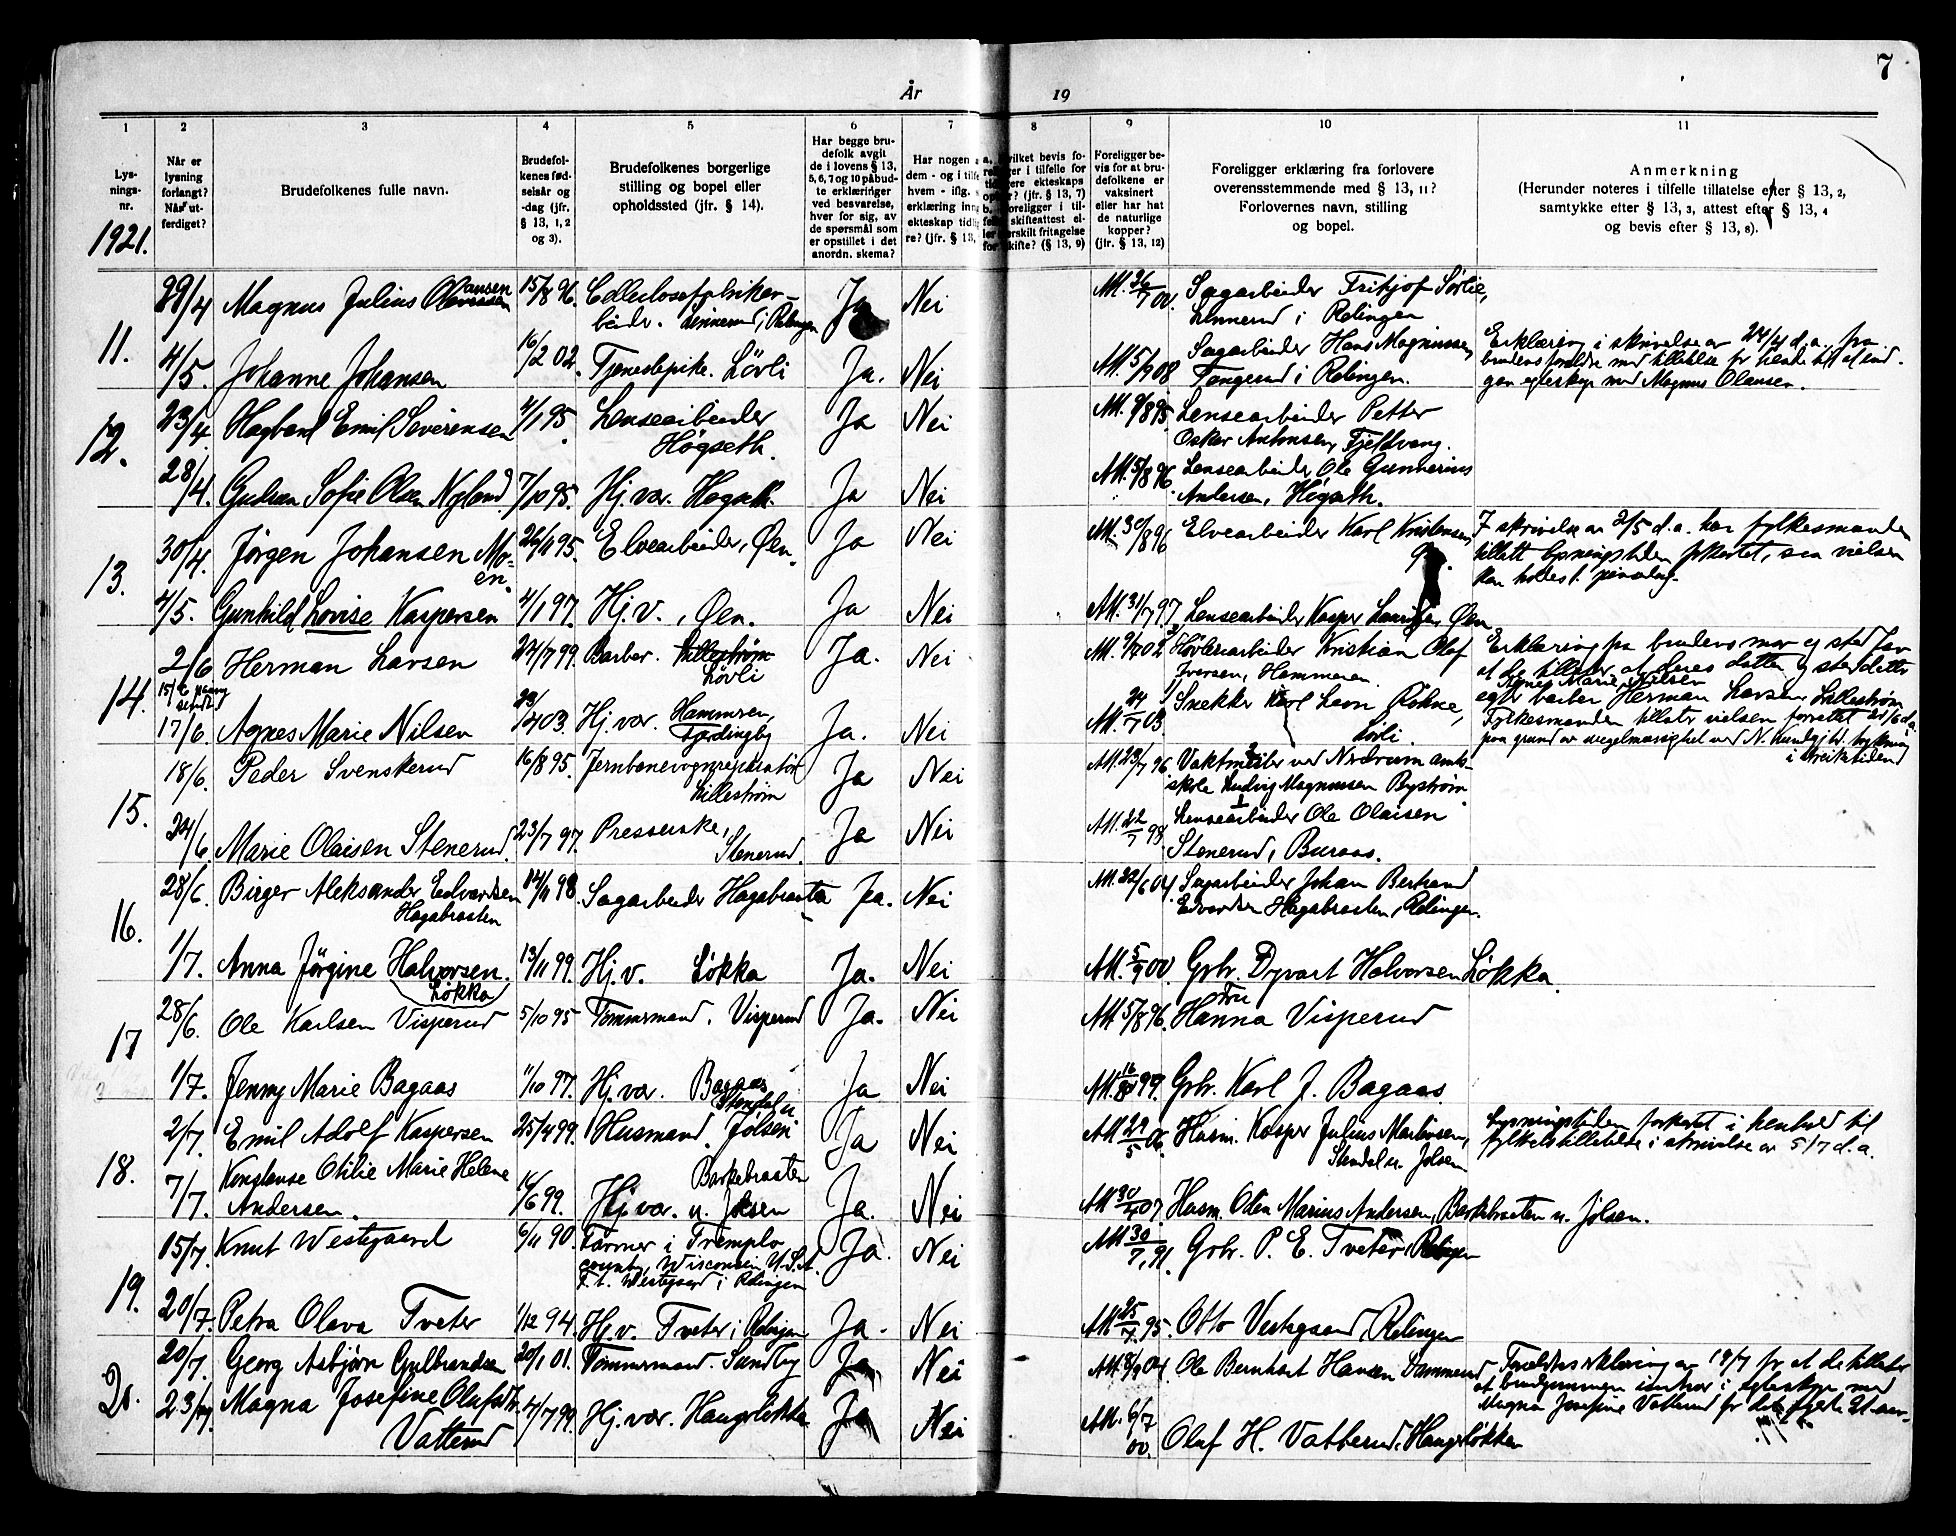 7
År 19
1 2 3 4 5 6 7 8 9 10 11
Lys-
nings-
nr.
Når er
lysning
forlangt?
Når ut-
ferdiget?
Brudefolkenes fulle navn.
Brudefol-
kenes fød-
selsår og
-dag (jfr.
§ 13, 1, 2
og 3).
Brudefolkenes borgerlige
stilling og bopel eller
opholdssted (jfr. § 14).
Har begge bru-
defolk avgit
de i lovens § 13,
5, 6, 7 og 10 påbud-
te erklæringer
ved besvarelse,
hver for sig, av
de spørsmål som
er opstillet i det
anordn. skema?
Har nogen a
dem - og i tilfe
hvem - iflg. s
erklæring inng
ekteskap tidlig
re? (jfr. § 13,
Foreligger be-
vis for at bru-
defolkene er
vaksinert
eller har hat
de naturlige
kopper?
(jfr. § 13, 12)
Foreligger erklæring fra forlovere
overensstemmende med § 13, 11?
Forlovernes navn, stilling
og bopel.
Anmerkning
(Herunder noteres i tilfelle tillatelse efter § 13, 2,
samtykke efter § 13, 3, attest efter § 13, 4
og bevis efter § 13, 8).
1921.
11.
29/4 Magnus Julius Olausen 15/8 96. Cellulosefabrikar-
beider. Linnerud i Rælingen Ja Nei Att. 26/7 00. Sagarbeider Fritjof Sørlie,
Linnerud i Rælingen
4/5. Johanne Johansen 16/2 02. Tjenestepike. Løvli Ja. Nei Att. 5/9 08 Sagarbeider Hans Magnussen
Tangerud i Rælingen.
Erklæring i skrivelse av 24/4 d.a. fra
brudens foreldre med tillatelse for hende til at ind-
gaa egteskap med Magnus Olausen.
12.
23/4 Hagbard Emil Severensen 4/1 95. Lensearbeider
Høgseth. Ja Nei Att. 9/8 95 Lensearbeider Petter
Oskar Antonsen, Fjeldvang.
28/4. Gudrun Sofie Olsen Nylund 7/10 95. Hj. vær. Høgseth. Ja Nei Att. 5/8 96 Lensearbeider Ole Gunnerius
Andersen, Høgseth.
13.
30/4. Jørgen Johansen Mo-
en. 26/11 95. Elvearbeider, Øen. Ja Nei Att. 30/8 96 Elvearbeider Karl Kristensen
I skrivelse av 2/5 d.a. har fylkesmanden
tillatt lysningstiden forkortet, saa vielsen
kan holdes
4/5. Gunhild Lovise Kaspersen 4/1 97. Hj. v., Øen. Ja Nei Att. 31/7 97 Lensearbeider Kasper Lauritsen, Øen
14.
2/6 Herman Larsen 24/7 99. Barber. Lillestrøm
Løvli Ja. Nei Att. 9/7 02 Høvleriarbeider Kristian Olaf
Iversen, Hammeren.
Erklæring fra brudens mor og stedfar
at de tillater at deres datter og steddatter
Agnes Marie Nilsen
egter barber Herman Larsen, Lillestrøm
17/6. Agnes Marie Nilsen 23/4 03. Hj. vær. Hammeren,
Fjerdingby Ja. Nei Att. 24/7 03 Snekker Karl Leon Røhne,
Løvli.
Fylkesmanden tillater vielsen forrettet 21/6 d.a.
paa grund av uregelmæssighet ved N. kundgj. bl. trykning
i streiketiden
15.
18/6. Peder Svenskerud 16/8 95. Jernbanevognreparatør
Lillestrøm Ja Nei Att. 23/7 96. Vaktmester ved Nordrum amts-
skole Ludvig Magnussen Byström.
24/6. Marie Olaisen Stenerud. 23/7 97. Presserske,
Stenerud. Ja Nei Att. 22/7 98 Lensearbeider Ole Olaisen
Stenerud, Buraas.
16.
28/6. Birger Aleksander Edvardsen
Hagabraaten 14/11 98. Sagarbeider Hagabraaten Ja. Nei Att. 22/6 04. Sagarbeider Johan Bertrand
Edvardsen Hagabraaten, Rælingen.
1/7. Anna Jörgine Halvorsen.
Løkka 13/11 99. Hj. v. Løkka Ja. Nei Att. 5/9 00 Grbr. Dyvart Halvorsen Løkka.
17
28/6. Ole Karlsen Visperud 5/10 95 Tømmermand. Visperud Ja. Nei Att. 5/8 96. Fru
Hanna Visperud
1/7. Jenny Marie Bagaas 11/10 97. Hj. vær. Bagaas Ja Nei Att. 16/8 99. Grbr. Karl J. Bagaas
18.
2/7. Emil Adolf Kaspersen 25/4 99. Husmand. Stendal u.
Jølsen Ja Nei Att. 29/5 06. Husm. Kasper Julius Martinsen,
Stendal u. Jølsen
Lysningstiden forkortet i henhold til
fylkets tillatelse i skrivelse av 5/7 d.a.
7/7. Konstanse Otilie Marie Helene
Andersen. 14/6 99. Hj. vær. Barkebraaten
u. Jølsen Ja. Nei Att. 30/4 07. Husm. Olin Marius Andersen, Barkebraaten u. Jølsen.
19.
15/7. Knut Westgaard 6/11 90. Farmer i Tremplo
county, Wisconsin U.S.A.
F. t. Westgaard i Rælingen Ja. Nei Att. 30/7 91. Grbr. P. E. Tveter, Rælingen
20/7. Petra Oleva Tveter 1/12 94. Hj. v. Tveter i Rælingen Ja. Nei Att. 25/7 95. Otto Vestgaard, Rælingen
20.
20/7. Georg Asbjørn Gulbrandsen 20/1 01. Tømmermand. Sundby Ja Nei Att. 8/9 04 Ole Bernhart Hansen Dammerud
Forældreerklæring av 19/7 for at de tillater
at brudgommen indtrær i egteskap med
Magna Josefine Vatterud før det fyldte 21 aar.
23/7 Magna Josefine Olafsdtr.
Vatterud 4/7 99. Hj. vær. Haugsløkka Ja Nei Att. 6/7 00. Oluf H. Vatterud, Haugsløkken